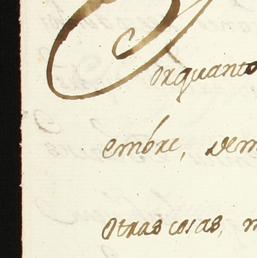 Porquanto
embre, dem
otras cosas,